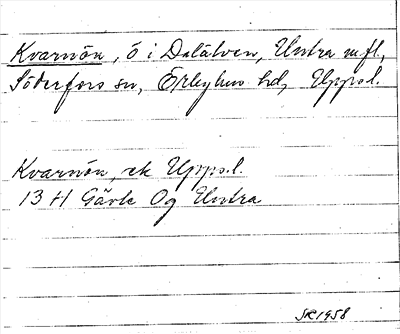 Kvarnön, ö i Dalälven, Untra m.fl,
Söderfors sn, Örbyhus hd, Upps.l.
Kvarnön, ek Upps.l.
13 H Gävle Og Untra
SR1958